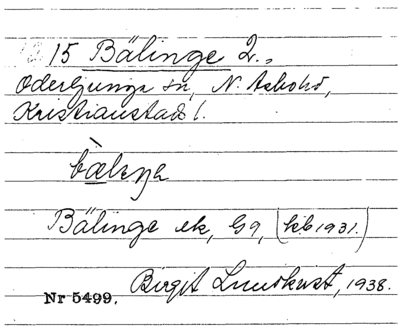 15 Bälinge 2.,
Oderljunga sn, N. Åsbohd,
Kristianstads l.
bæleŋe
Bälinge ek, G9, (kb 1931.)
Birgit Lundkvist, 1938.
Nr 5499.